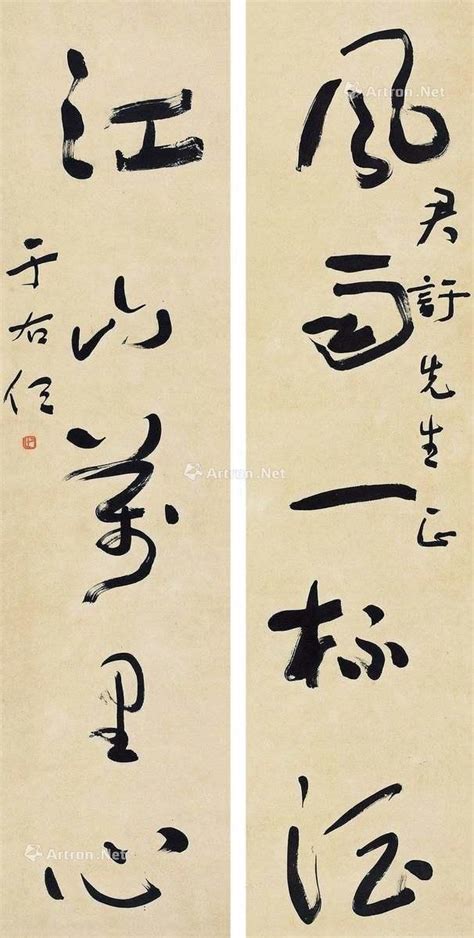 風雨一杯酒
君訏先生正
江山萬里心
于右任
Artron.Net
Artron.Net
Artron.Net
Artron.Net